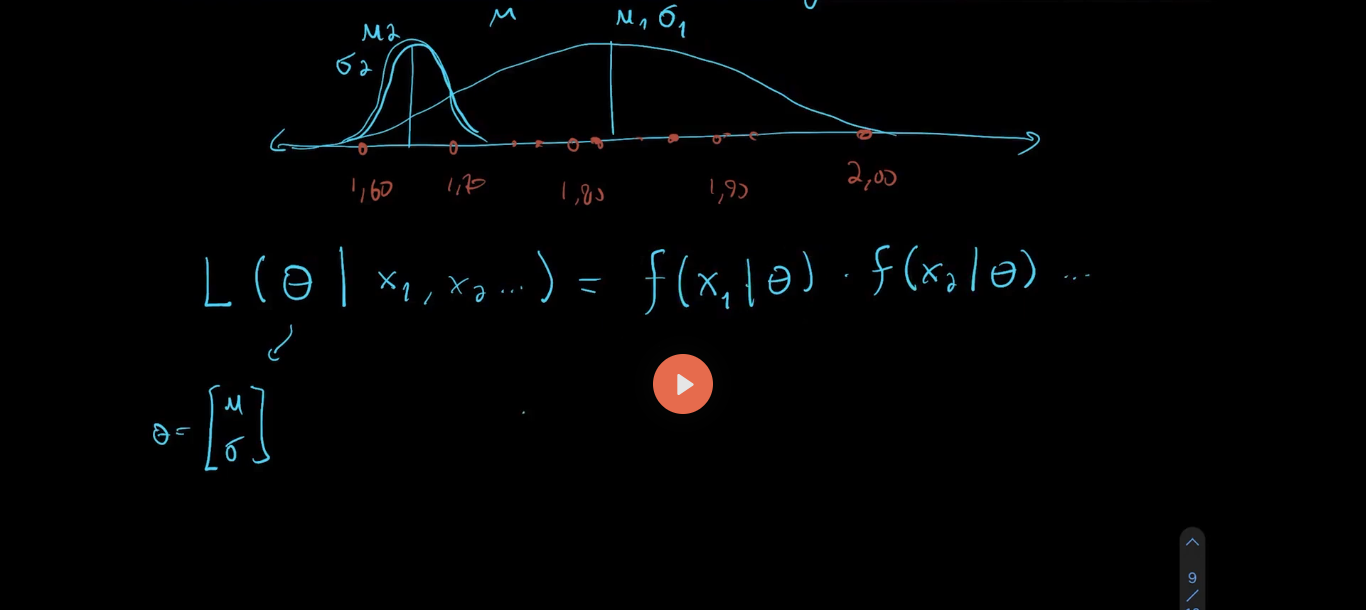 μ μ₁ σ₁
μ2
σ2
1,60 1,70 1,80 1,90 2,00
L(θ | x₁, x₂ ...) = f(x₁|θ) · f(x₂|θ) ...
θ = [μ
σ]
9
/